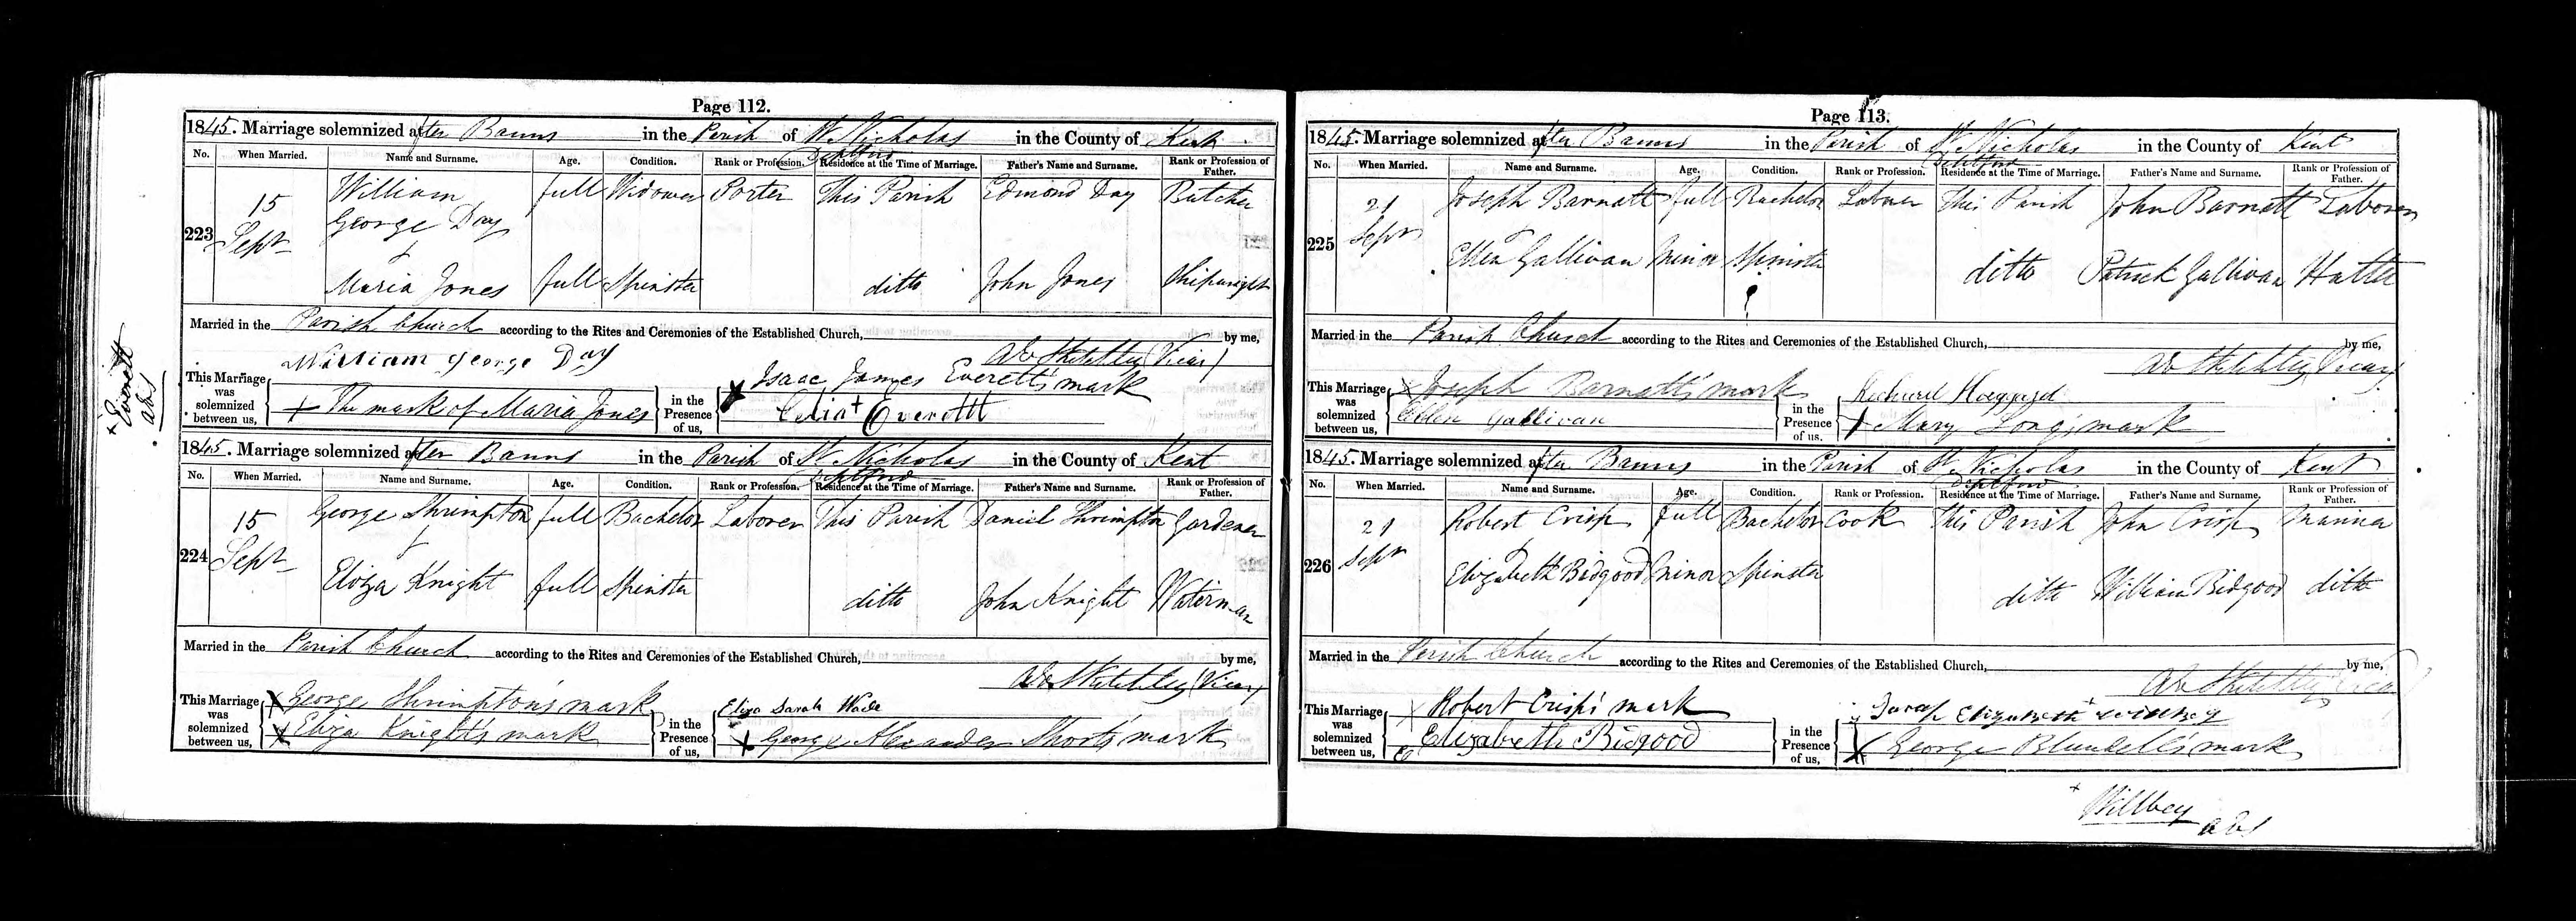 Page 112.
1845. Marriage solemnized after Banns in the Parish of St Nicholas Deptford in the County of Kent.
No. When Married. Name and Surname. Age. Condition. Rank or Profession. Residence at the Time of Marriage. Father's Name and Surname. Rank or Profession of Father.
223 15 Sept William George Day full Widower Porter This Parish Edmond Day Butcher
Maria Jones full Spinster ditto John Jones Shipwright
Married in the Parish Church according to the Rites and Ceremonies of the Established Church, by me,
(Vicar)
This Marriage was solemnized between us, William George Day
X The mark of Maria Jones
in the Presence of us, X Isaac James Everett's mark
Celia + Everettt
+ Everett
abs
1845. Marriage solemnized after Banns in the Parish of St Nicholas Deptford in the County of Kent
No. When Married. Name and Surname. Age. Condition. Rank or Profession. Residence at the Time of Marriage. Father's Name and Surname. Rank or Profession of Father.
224 15 Sept George Shrimpton full Bachelor Laborer This Parish Daniel Shrimpton Gardener
Eliza Knight full Spinster ditto John Knight Waterman
Married in the Parish Church according to the Rites and Ceremonies of the Established Church, by me,
(Vicar)
This Marriage was solemnized between us, X George Shrimpton's mark
X Eliza Knight's mark
in the Presence of us, Eliza Sarah Wade
X George Alexander Short's mark
Page 113.
1845. Marriage solemnized after Banns in the Parish of St Nicholas Deptford in the County of Kent
No. When Married. Name and Surname. Age. Condition. Rank or Profession. Residence at the Time of Marriage. Father's Name and Surname. Rank or Profession of Father.
225 21 Sept Joseph Barnatt full Bachelor Laborer This Parish John Barnatt Laborer
Ellen Gallivan Minor Spinster ditto Patrick Gallivan Hatter
Married in the Parish Church according to the Rites and Ceremonies of the Established Church, by me,
(Vicar)
This Marriage was solemnized between us, X Joseph Barnatt's mark
Ellen Gallivan
in the Presence of us, Richard
X Mary Long's mark
1845. Marriage solemnized after Banns in the Parish of St Nicholas Deptford in the County of Kent
No. When Married. Name and Surname. Age. Condition. Rank or Profession. Residence at the Time of Marriage. Father's Name and Surname. Rank or Profession of Father.
226 21 Sept Robert Crisp full Bachelor Cook This Parish John Crisp Mariner
Elizabeth Bidgood Minor Spinster ditto William Bidgood ditto
Married in the Parish Church according to the Rites and Ceremonies of the Established Church, by me,
This Marriage was solemnized between us, X Robert Crisp's mark
Elizabeth Bidgood
in the Presence of us, Elizabeth +
X George Blundell's mark
+ Willbey abs